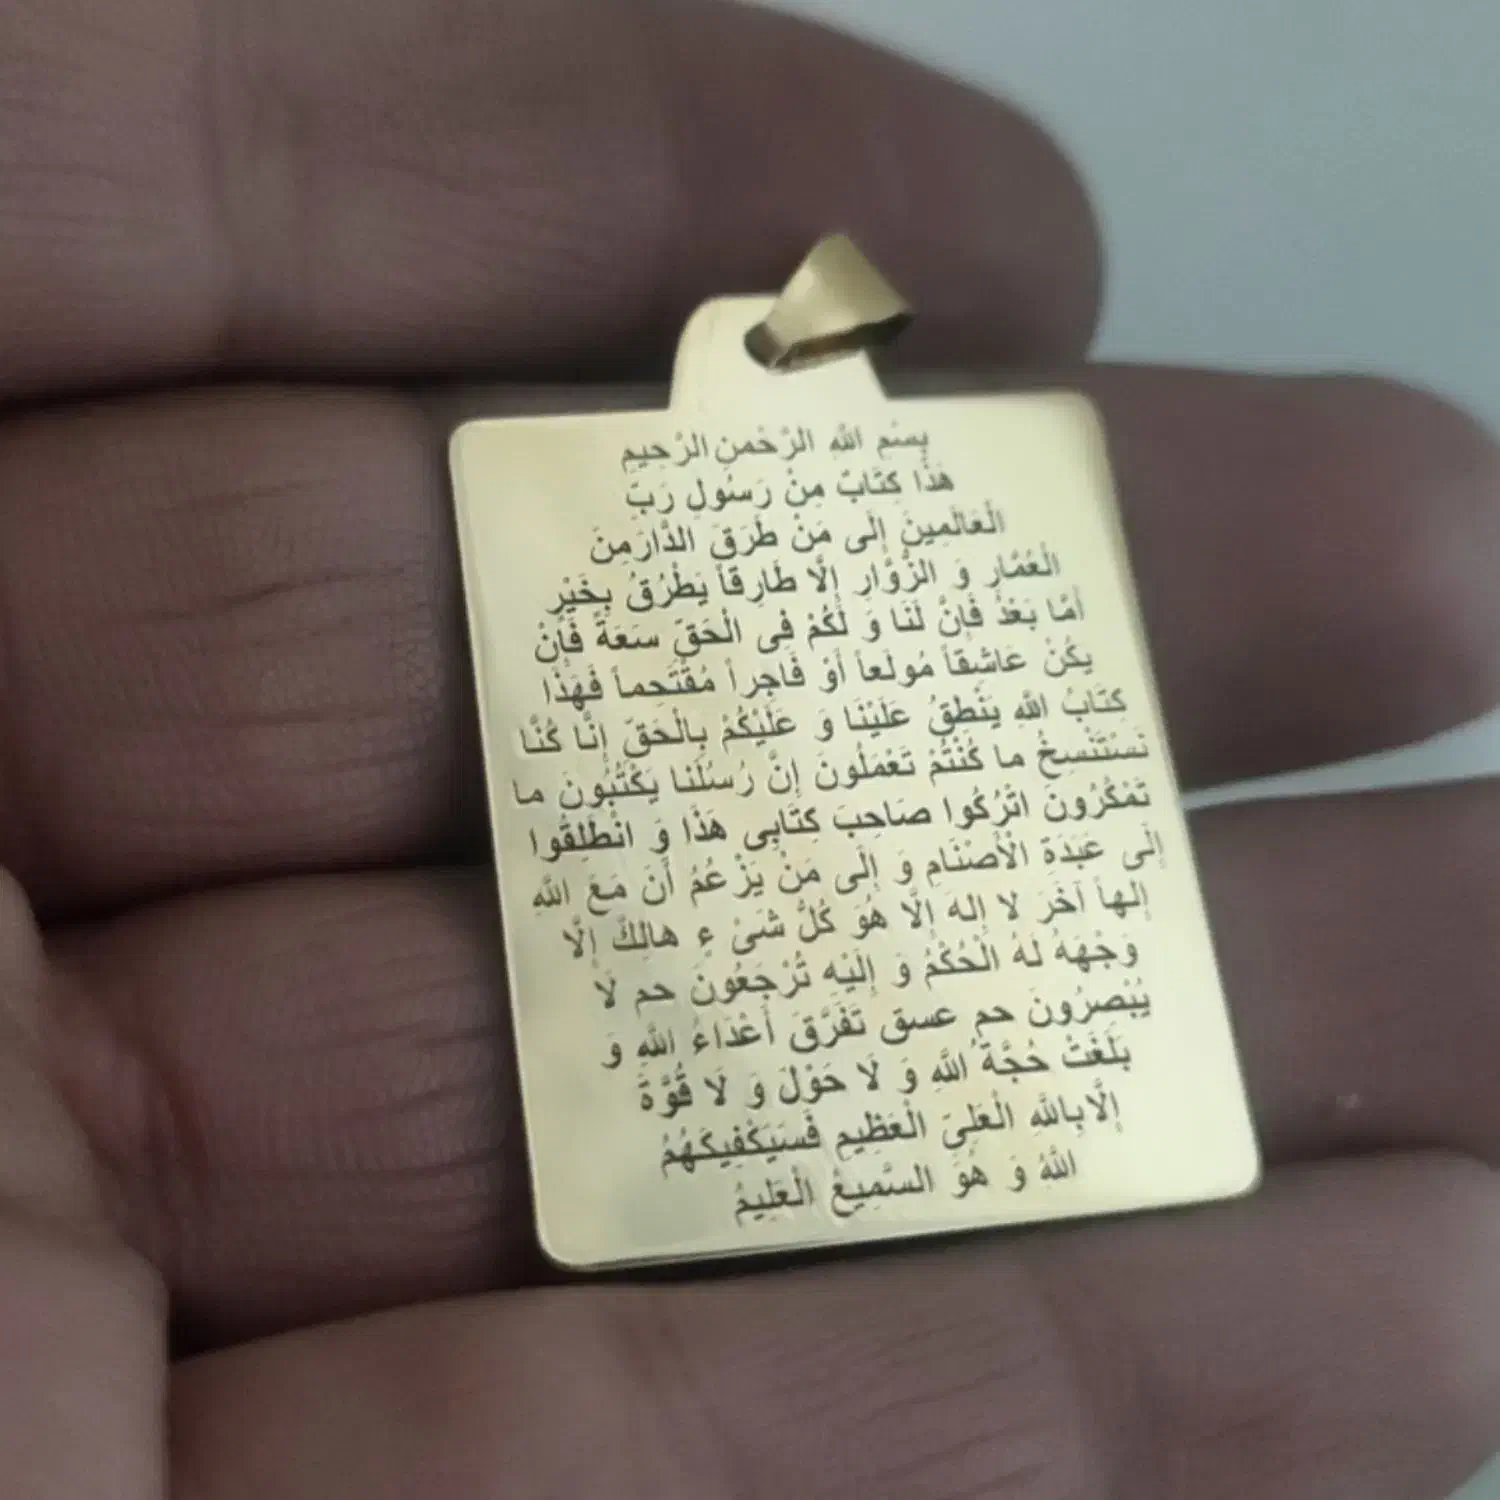 بِسْمِ اللّٰهِ الرَّحْمنِ الرَّحِيمِ
هَذَا كِتَابٌ مِنْ رَسُولِ رَبِّ
الْعَالَمِينَ إِلَى مَنْ طَرَقَ الدَّارَمِنَ
الْعُمَّارِ وَ الزُّوَّارِ إِلَّا طَارِقاً يَطْرُقُ بِخَيْرٍ
أَمَّا بَعْدُ فَإِنَّ لَنَا وَ لَكُمْ فِى الْحَقِّ سَعَةً فَأِنْ
يَكُنْ عَاشِقاً مُولَعاً أَوْ فَاجِراً مُقْتَحِماً فَهَذَا
كِتَابُ اللّٰهِ يَنْطِقُ عَلَيْنَا وَ عَلَيْكُمْ بِالْحَقِّ إِنَّا كُنَّا
نَسْتَنْسِخُ ما كُنْتُمْ تَعْمَلُونَ إِنَّ رُسُلَنا يَكْتُبُونَ ما
تَمْكُرُونَ اتْرُكُوا صَاحِبَ كِتَابِى هَذَا وَ انْطَلِقُوا
إِلَى عَبَدَةِ الْأَصْنَامِ وَ إِلَى مَنْ يَزْعُمُ أَنَ مَعَ اللّٰهِ
إِلهاً آخَرَ لا إِلهَ إِلَّا هُوَ كُلُّ شَىْ ءٍ هالِكٌ إِلَّا
وَجْهَهُ لَهُ الْحُكْمُ وَ إِلَيْهِ تُرْجَعُونَ حم لَا
يُبْصِرُونَ حم عسق تَفَرَّقَ أَعْدَاءُ اللّٰهِ وَ
بَلَغَتْ حُجَّةُ اللّٰهِ وَ لَا حَوْلَ وَ لَا قُوَّةَ
إِلَّابِاللّٰهِ الْعَلِىِّ الْعَظِيمِ فَسَيَكْفِيكَهُمُ
اللّٰهُ وَ هُوَ السَّمِيعُ الْعَلِيمُ